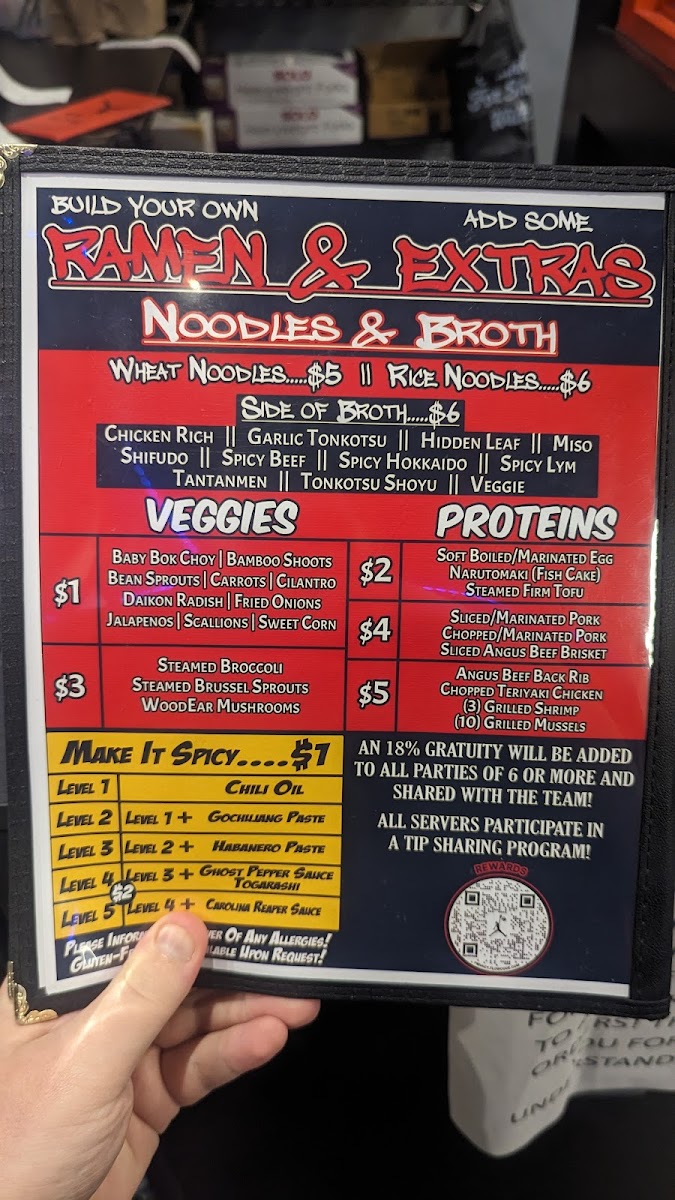 BUILD YOUR OWN
ADD SOME
RAMEN & EXTRAS
NOODLES & BROTH
WHEAT NOODLES.....$5 || RICE NOODLES.....$6
SIDE OF BROTH.....$6
CHICKEN RICH || GARLIC TONKOTSU || HIDDEN LEAF || MISO
SHIFUDO || SPICY BEEF || SPICY HOKKAIDO || SPICY LYM
TANTANMEN || TONKOTSU SHOYU || VEGGIE
VEGGIES
$1
BABY BOK CHOY | BAMBOO SHOOTS
BEAN SPROUTS | CARROTS | CILANTRO
DAIKON RADISH | FRIED ONIONS
JALAPENOS | SCALLIONS | SWEET CORN
$3
STEAMED BROCCOLI
STEAMED BRUSSEL SPROUTS
WOODEAR MUSHROOMS
PROTEINS
$2
SOFT BOILED/MARINATED EGG
NARUTOMAKI (FISH CAKE)
STEAMED FIRM TOFU
$4
SLICED/MARINATED PORK
CHOPPED/MARINATED PORK
SLICED ANGUS BEEF BRISKET
$5
ANGUS BEEF BACK RIB
CHOPPED TERIYAKI CHICKEN
(3) GRILLED SHRIMP
(10) GRILLED MUSSELS
MAKE IT SPICY....$1
LEVEL 1 CHILI OIL
LEVEL 2 LEVEL 1 + GOCHUJANG PASTE
LEVEL 3 LEVEL 2 + HABANERO PASTE
LEVEL 4 LEVEL 3 + GHOST PEPPER SAUCE
TOGARASHI
$2
LEVEL 5 LEVEL 4 + CAROLINA REAPER SAUCE
PLEASE INFOR VER OF ANY ALLERGIES!
GLUTEN-F LABLE UPON REQUEST!
AN 18% GRATUITY WILL BE ADDED
TO ALL PARTIES OF 6 OR MORE AND
SHARED WITH THE TEAM!
ALL SERVERS PARTICIPATE IN
A TIP SHARING PROGRAM!
REWARDS